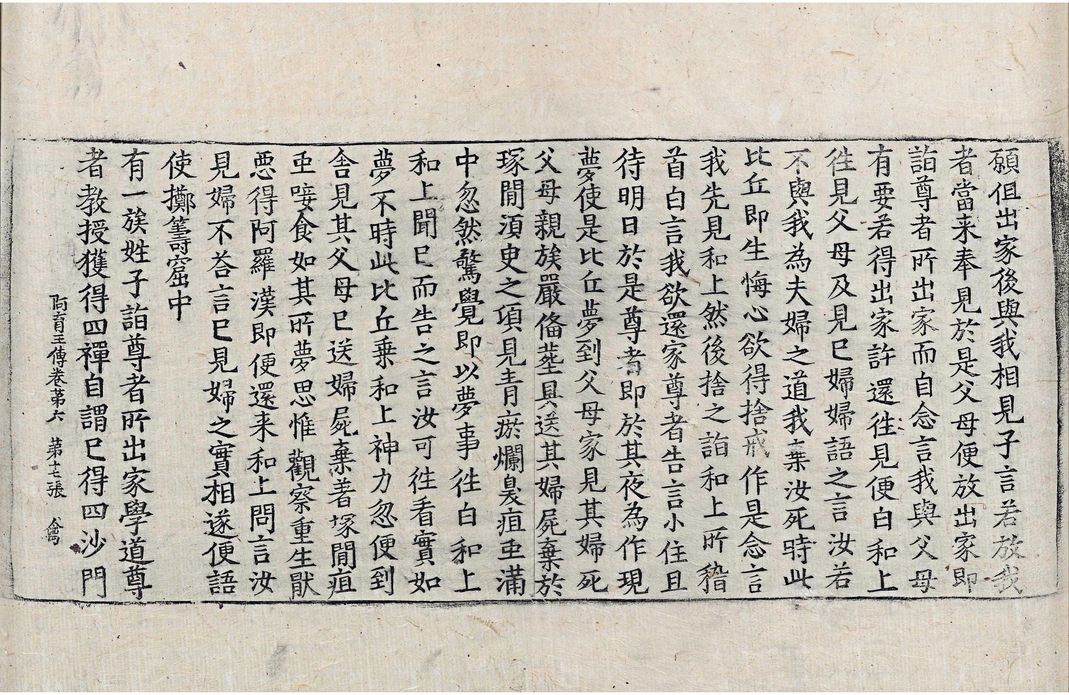 願但出家後與我相見子言若放我
者當来奉見於是父母便放出家即
詣尊者所出家而自念言我與父母
有要若得出家許還往見便白和上
徃見父母及見已婦婦語之言汝若
不與我為夫婦之道我棄汝死時此
比丘即生悔心欲得捨戒作是念言
我先見和上然後捨之詣和上所稽
首白言我欲還家尊者告言小住且
待明日於是尊者即於其夜為作現
夢使是比丘夢到父母家見其婦死
父母親族嚴俻塟具送其婦屍棄於
塚間須㬰之頃見青瘀爛臭疽䖝滿
中忽然驚覺即以夢事徃白和上
和上聞已而告之言汝可徃看實如
夢不時此比丘乗和上神力忽便到
舎見其父母已送婦屍棄著塚間疽
䖝唼食如其所夢思惟觀察重生猒
惡得阿羅漢即便還来和上問言汝
見婦不荅言已見婦之實相遂便語
使擲籌窟中
有一族姓子詣尊者所出家學道尊
阿育王傳卷第六 第十三張 禽
者教授獲得四禪自謂已得四沙門